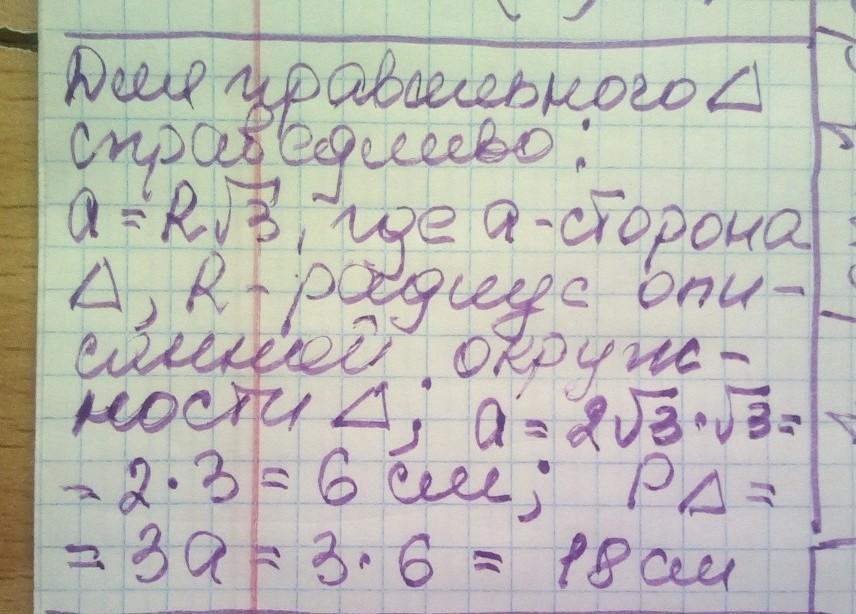 Для правильного Δ
справедливо:
a = R√3, где a - сторона
Δ, R - радиус опи-
санной окруж-
ности Δ; a = 2√3·√3 =
= 2·3 = 6 см; PΔ =
= 3a = 3·6 = 18 см